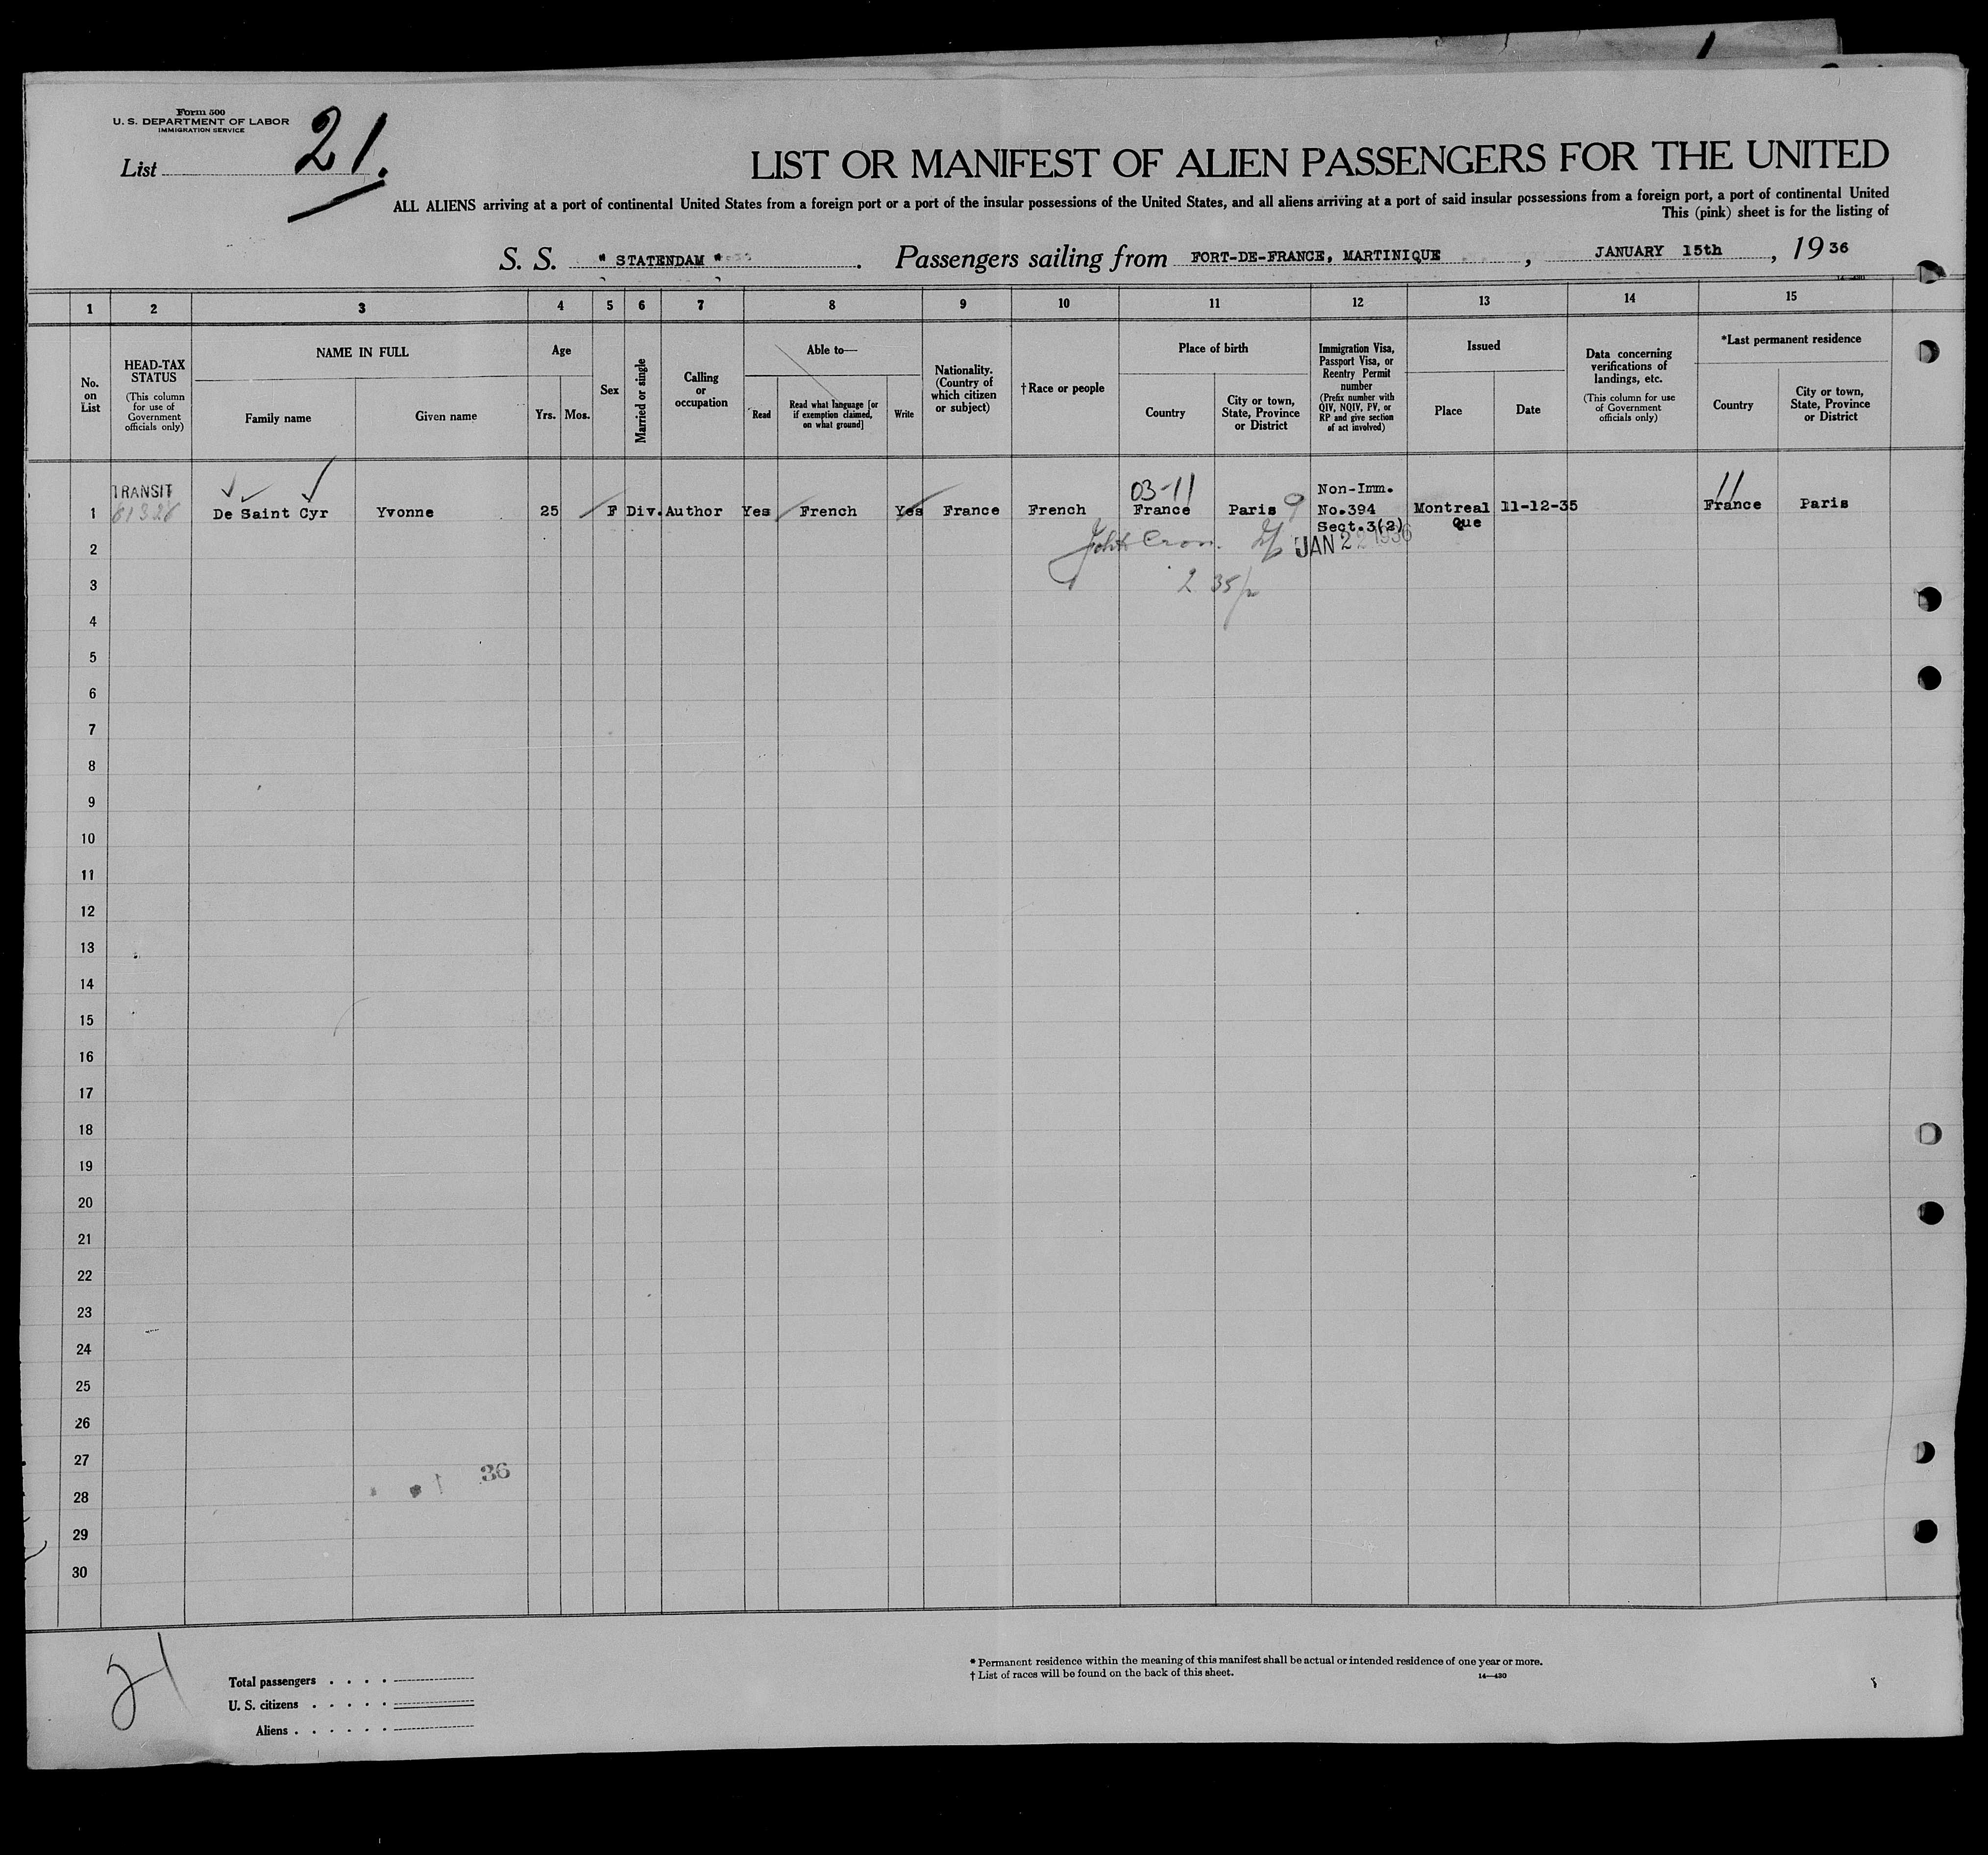 Form 500
U. S. DEPARTMENT OF LABOR
IMMIGRATION SERVICE
List 21.
LIST OR MANIFEST OF ALIEN PASSENGERS FOR THE UNITED
ALL ALIENS arriving at a port of continental United States from a foreign port or a port of the insular possessions of the United States, and all aliens arriving at a port of said insular possessions from a foreign port, a port of continental United
This (pink) sheet is for the listing of
S. S. " STATENDAM " . Passengers sailing from FORT-DE-FRANCE, MARTINIQUE , JANUARY 15th , 19 36
1 2 3 4 5 6 7 8 9 10 11 12 13 14 15
No. on List
HEAD-TAX STATUS
(This column for use of Government officials only)
NAME IN FULL
Family name
Given name
Age
Yrs.
Mos.
Sex
Married or single
Calling or occupation
Able to—
Read
Read what language [or if exemption claimed, on what ground]
Write
Nationality. (Country of which citizen or subject)
† Race or people
Place of birth
Country
City or town, State, Province or District
Immigration Visa, Passport Visa, or Reentry Permit number
(Prefix number with QIV, NQIV, PV, or RP and give section of act involved)
Issued
Place
Date
Data concerning verifications of landings, etc.
(This column for use of Government officials only)
*Last permanent residence
Country
City or town, State, Province or District
TRANSIT 03-11 Non-Imm. 11
1 De Saint Cyr Yvonne 25 F Div. Author Yes French Yes France French France Paris No.394 Montreal 11-12-35 France Paris
Sect.3(2) Que
2 JAN 22 1936
3 2 35
4
5
6
7
8
9
10
11
12
13
14
15
16
17
18
19
20
21
22
23
24
25
26
27
36
28
29
30
21
Total passengers . . . .
U. S. citizens . . . . .
Aliens . . . . . .
* Permanent residence within the meaning of this manifest shall be actual or intended residence of one year or more.
† List of races will be found on the back of this sheet.
14—430